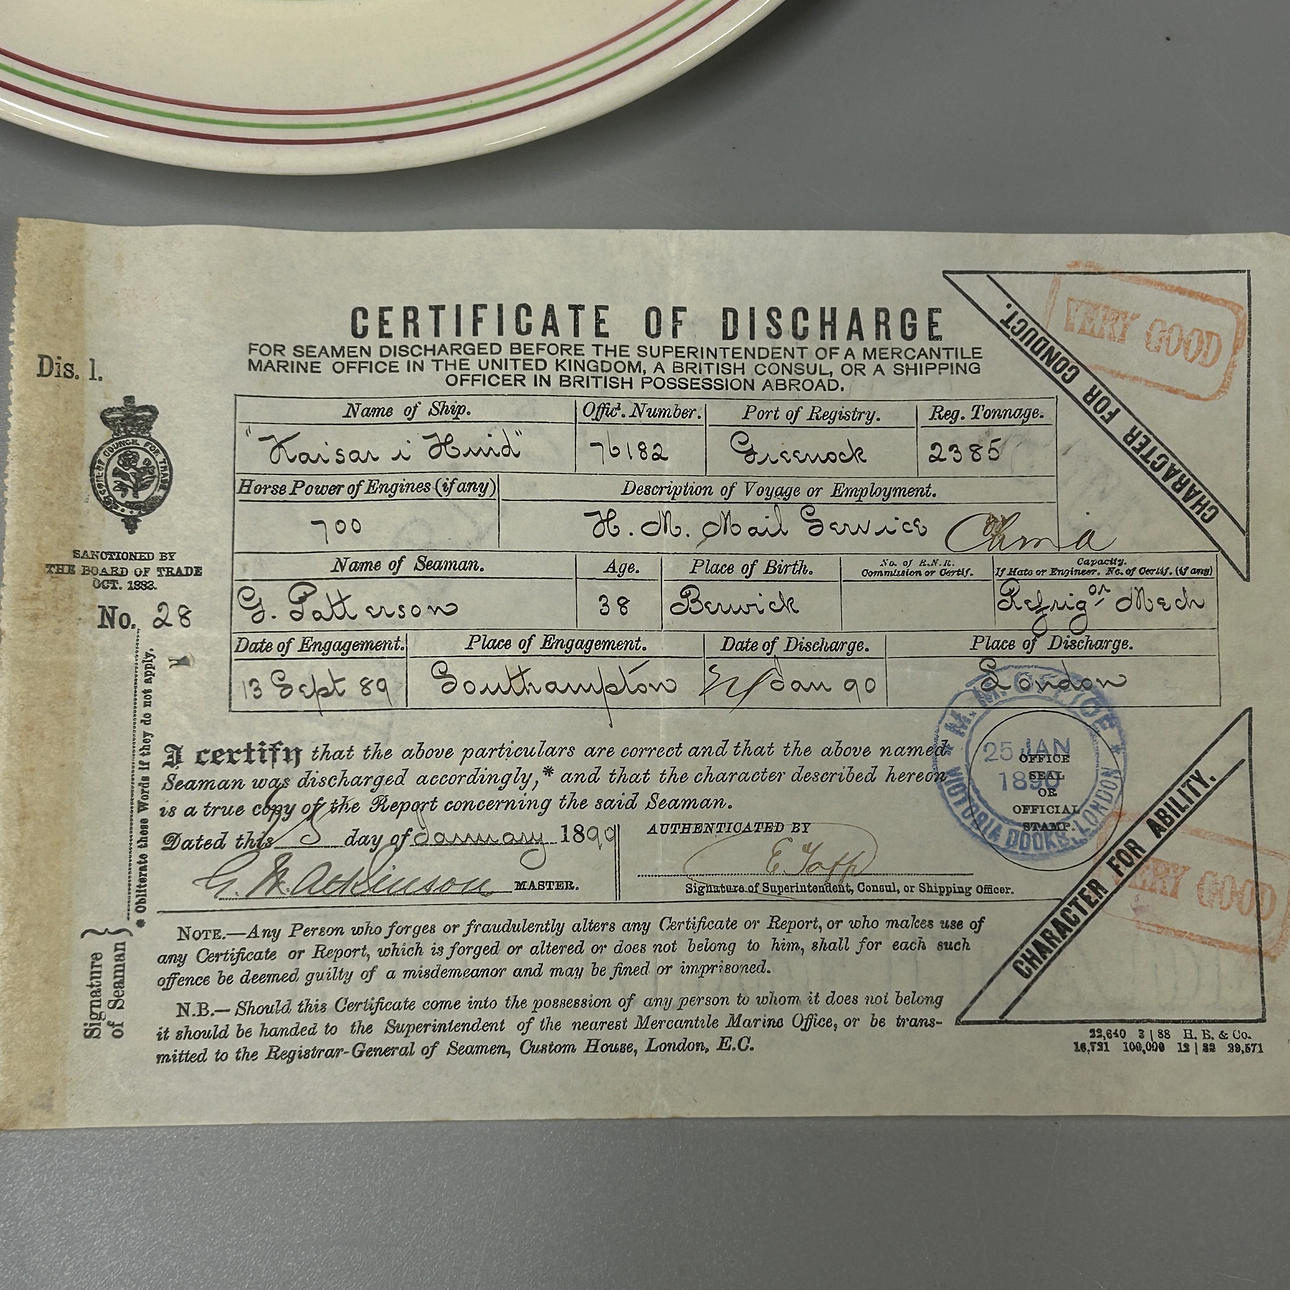 CERTIFICATE OF DISCHARGE
FOR SEAMEN DISCHARGED BEFORE THE SUPERINTENDENT OF A MERCANTILE
MARINE OFFICE IN THE UNITED KINGDOM, A BRITISH CONSUL, OR A SHIPPING
OFFICER IN BRITISH POSSESSION ABROAD.
Dis. 1.
SANCTIONED BY
THE BOARD OF TRADE
OCT. 1883.
No. 28
* Obliterate these Words if they do not apply.
Signature
of Seaman
CHARACTER FOR CONDUCT.
VERY GOOD
Name of Ship. Offic. Number. Port of Registry. Reg. Tonnage.
"Kaisar i Hind" 76182 Greenock 2385
Horse Power of Engines (if any) Description of Voyage or Employment.
700 H. M. Mail Service China
Name of Seaman. Age. Place of Birth. No. of R.N.R. Commission or Certif. Capacity. If Mate or Engineer, No. of Certif. (if any)
G. Patterson 38 Berwick Refrigor Mech
Date of Engagement. Place of Engagement. Date of Discharge. Place of Discharge.
13 Sept 89 Southampton Jan 90 London
I certify that the above particulars are correct and that the above named
Seaman was discharged accordingly,* and that the character described hereon
is a true copy of the Report concerning the said Seaman.
Dated this day of January 18
MASTER.
AUTHENTICATED BY
Signature of Superintendent, Consul, or Shipping Officer.
M. M. OFFICE
25 JAN
VICTORIA DOCKS, LONDON
OFFICE
SEAL
OR
OFFICIAL
STAMP.
CHARACTER FOR ABILITY.
VERY GOOD
NOTE.—Any Person who forges or fraudulently alters any Certificate or Report, or who makes use of
any Certificate or Report, which is forged or altered or does not belong to him, shall for each such
offence be deemed guilty of a misdemeanor and may be fined or imprisoned.
N.B.—Should this Certificate come into the possession of any person to whom it does not belong
it should be handed to the Superintendent of the nearest Mercantile Marine Office, or be trans-
mitted to the Registrar-General of Seamen, Custom House, London, E.C.
H. B. & Co.